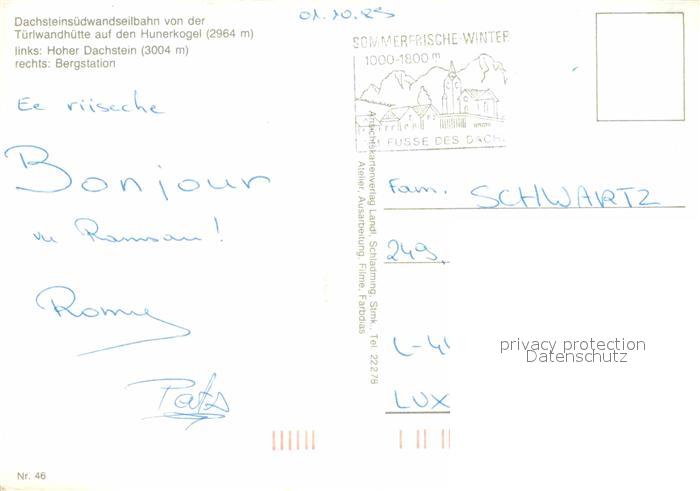 Dachsteinsüdwandseilbahn von der
Türlwandhütte auf den Hunerkogel (2964 m)
links: Hoher Dachstein (3004 m)
rechts: Bergstation
01.10.83
SOMMERFRISCHE-WINTER
1000-1800 m
FUSSE DES DACH
Ee riiseche
Bonjour
vu Ramsau!
Romy
Pats
Ansichtskartenverlag Landl, Schladming, Stmk., Tel. 22278
Atelier, Ausarbeitung, Filme, Farbdias
Fam. SCHWARTZ
249,
L-4
LUX
privacy protection
Datenschutz
Nr. 46